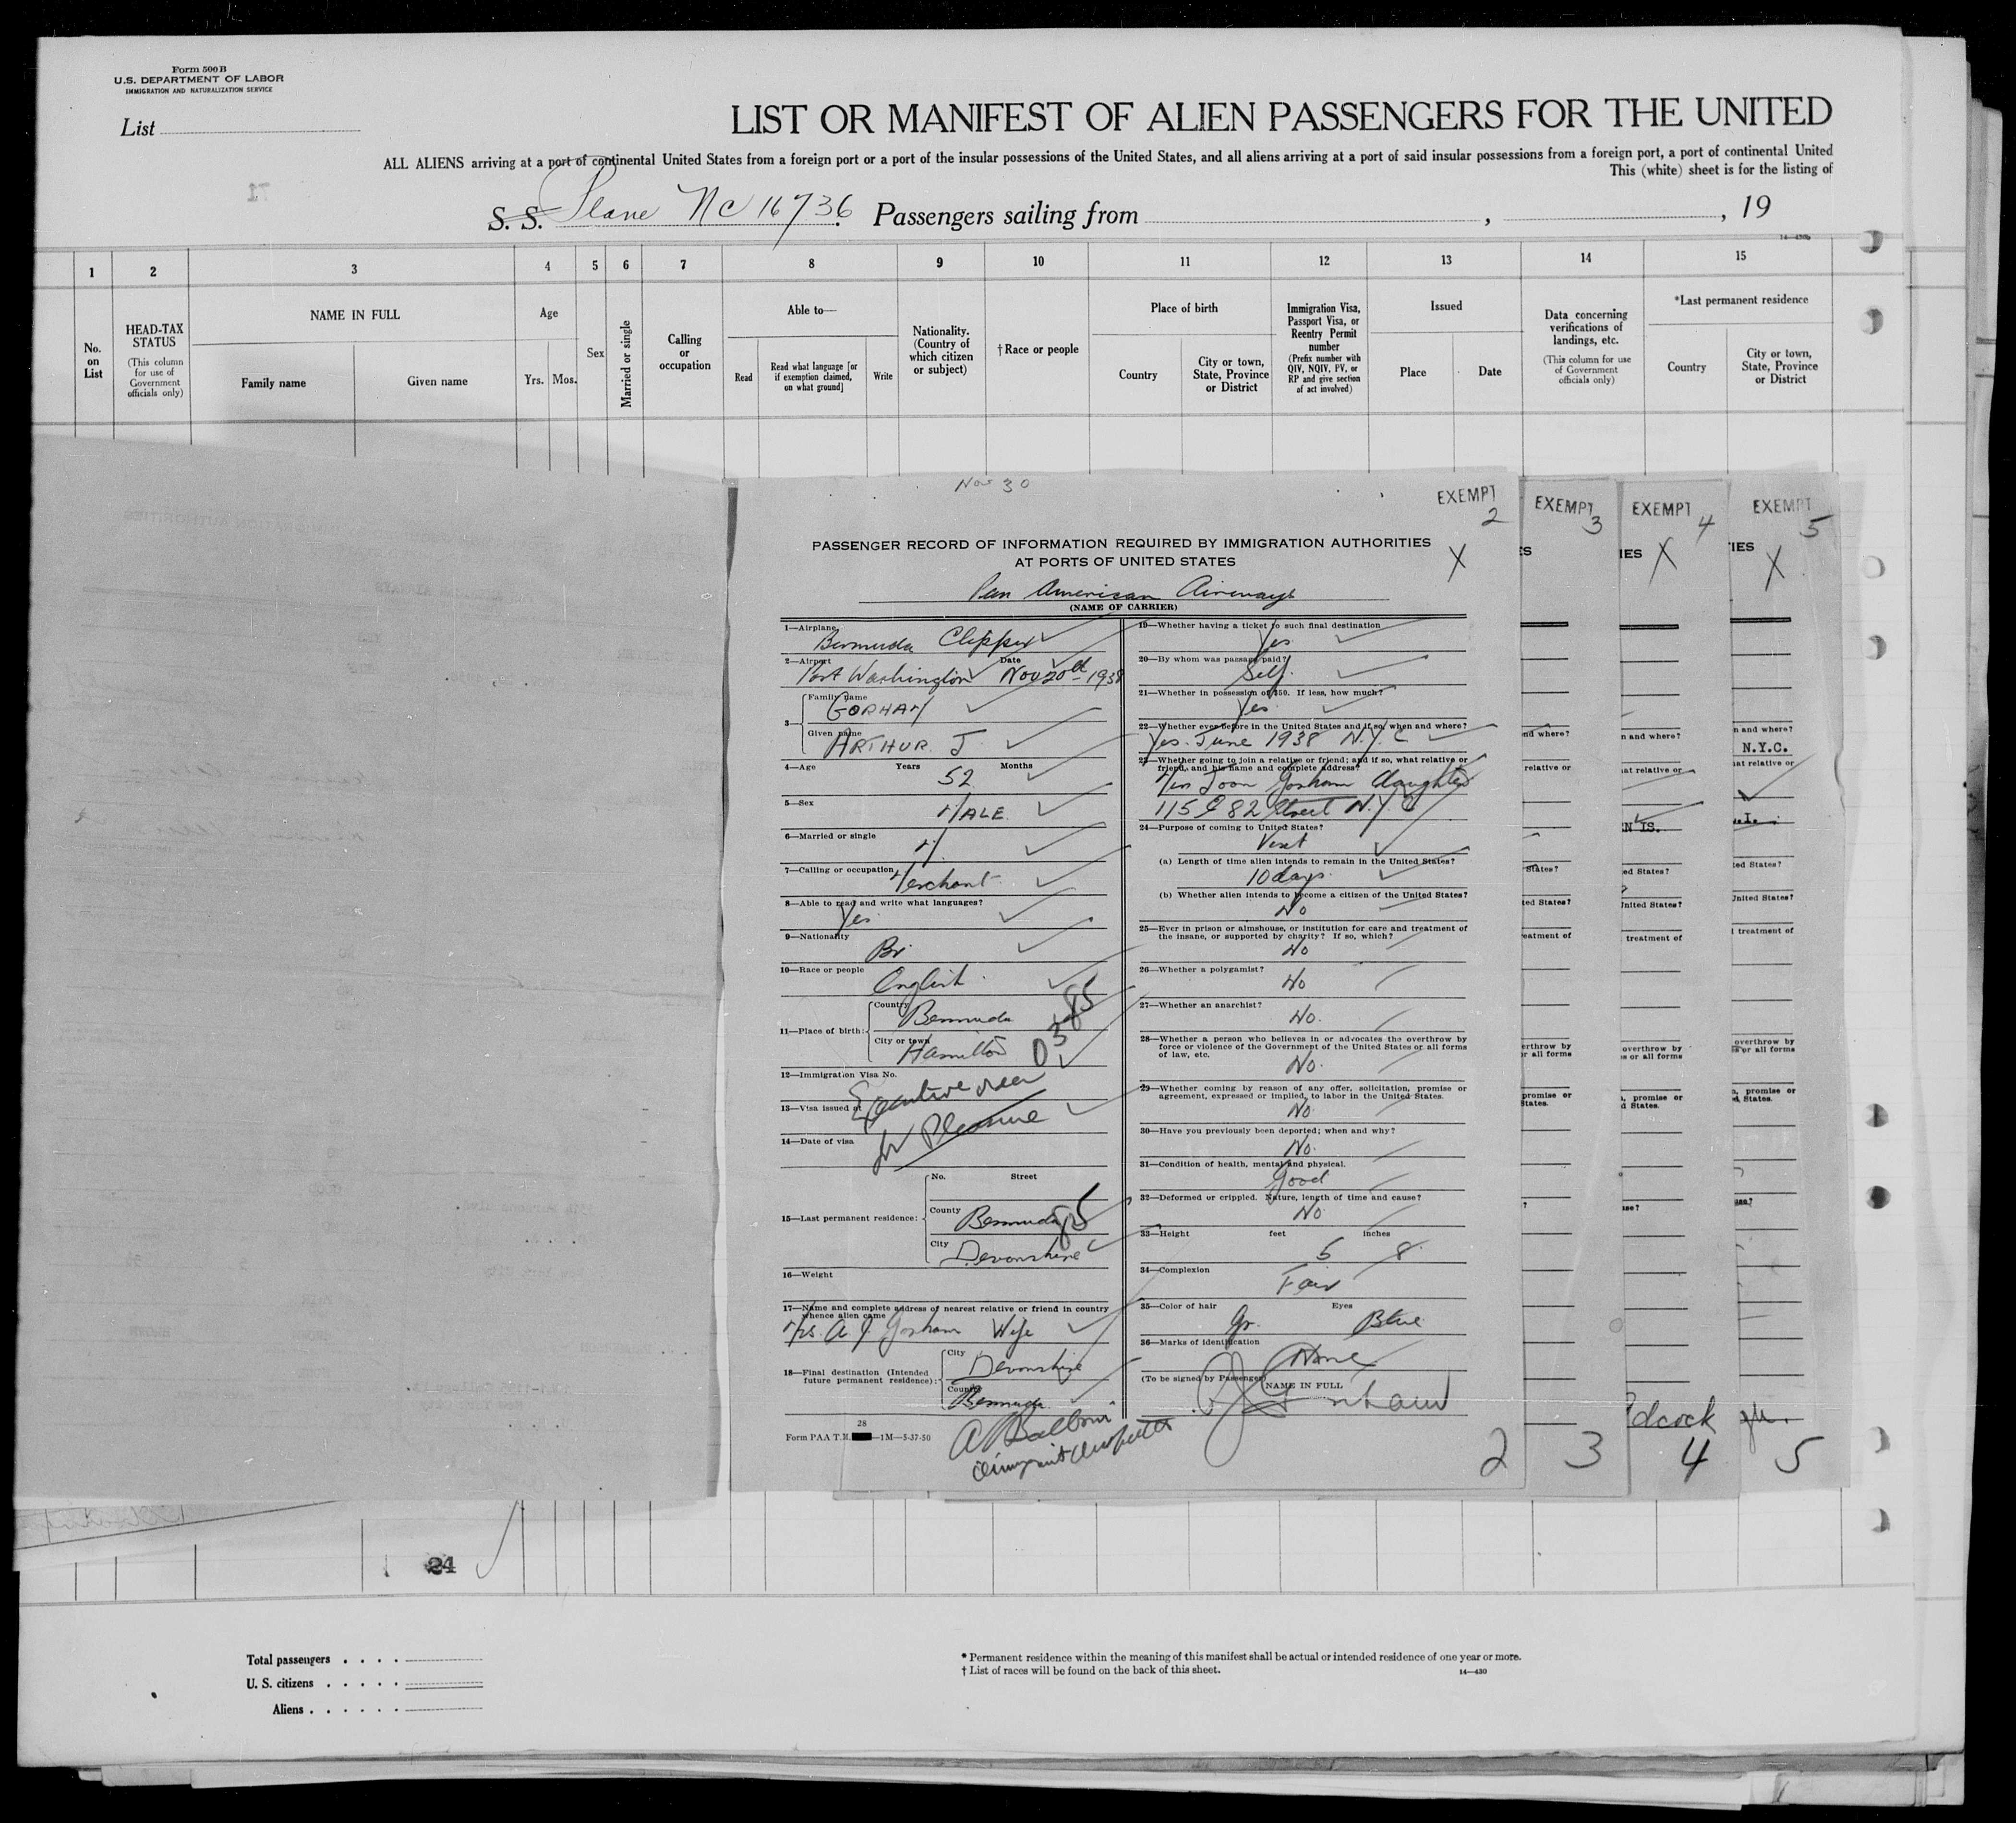 Form 500 B
U.S. DEPARTMENT OF LABOR
IMMIGRATION AND NATURALIZATION SERVICE
List
LIST OR MANIFEST OF ALIEN PASSENGERS FOR THE UNITED
ALL ALIENS arriving at a port of continental United States from a foreign port or a port of the insular possessions of the United States, and all aliens arriving at a port of said insular possessions from a foreign port, a port of continental United
This (white) sheet is for the listing of
S. S. Plane NC 16736 Passengers sailing from , , 19
14—430b
1 2 3 4 5 6 7 8 9 10 11 12 13 14 15
No. on List
HEAD-TAX STATUS
(This column for use of Government officials only)
NAME IN FULL
Family name
Given name
Age
Yrs. Mos.
Sex
Married or single
Calling or occupation
Able to—
Read
Read what language [or if exemption claimed, on what ground]
Write
Nationality. (Country of which citizen or subject)
†Race or people
Place of birth
Country
City or town, State, Province or District
Immigration Visa, Passport Visa, or Reentry Permit number
(Prefix number with QIV, NQIV, PV, or RP and give section of act involved)
Issued
Place
Date
Data concerning verifications of landings, etc.
(This column for use of Government officials only)
*Last permanent residence
Country
City or town, State, Province or District
Nov 30
EXEMPT 2
EXEMPT 3
EXEMPT 4
EXEMPT 5
PASSENGER RECORD OF INFORMATION REQUIRED BY IMMIGRATION AUTHORITIES
AT PORTS OF UNITED STATES
Pan American Airways
(NAME OF CARRIER)
1—Airplane
Bermuda Clipper
2—Airport Date
Port Washington Nov 20th 1938
3— Family name
GORHAM
Given name
ARTHUR. J.
4—Age Years Months
52
5—Sex
MALE.
6—Married or single
M.
7—Calling or occupation
Merchant.
8—Able to read and write what languages?
Yes.
9—Nationality
Br.
10—Race or people
English.
11—Place of birth: Country
Bermuda
City or town
Hamilton
0385
12—Immigration Visa No.
Executive order
13—Visa issued at
14—Date of visa
for Pleasure
15—Last permanent residence: No. Street
County
Bermuda 85
City
Devonshire
16—Weight
17—Name and complete address of nearest relative or friend in country
whence alien came
Mrs. A J Gorham Wife
18—Final destination (Intended
future permanent residence): City
Devonshire
County
Bermuda.
28
Form PAA T.M. —1M—5-37-50
19—Whether having a ticket to such final destination
Yes.
20—By whom was passage paid?
Self.
21—Whether in possession of $50. If less, how much?
Yes.
22—Whether ever before in the United States and if so, when and where?
Yes. June 1938 N.Y.C
23—Whether going to join a relative or friend; and if so, what relative or
friend, and his name and complete address?
Miss Joan Gorham daughter
115 E 82 Street N.Y.C
24—Purpose of coming to United States?
Visit
(a) Length of time alien intends to remain in the United States?
10 days.
(b) Whether alien intends to become a citizen of the United States?
No
25—Ever in prison or almshouse, or institution for care and treatment of
the insane, or supported by charity? If so, which?
No
26—Whether a polygamist?
No
27—Whether an anarchist?
No.
28—Whether a person who believes in or advocates the overthrow by
force or violence of the Government of the United States or all forms
of law, etc.
No.
29—Whether coming by reason of any offer, solicitation, promise or
agreement, expressed or implied, to labor in the United States.
No.
30—Have you previously been deported; when and why?
No.
31—Condition of health, mental and physical.
Good
32—Deformed or crippled. Nature, length of time and cause?
No
33—Height feet inches
5 8
34—Complexion
Fair
35—Color of hair Eyes
Gr. Blue
36—Marks of identification
None
(To be signed by Passenger) NAME IN FULL
A J Gorham
Immigrant Inspector
2 3 4 5
N.Y.C.
N IS.
dcock Jr.
24
Total passengers
U. S. citizens
Aliens
* Permanent residence within the meaning of this manifest shall be actual or intended residence of one year or more.
† List of races will be found on the back of this sheet.
14—430